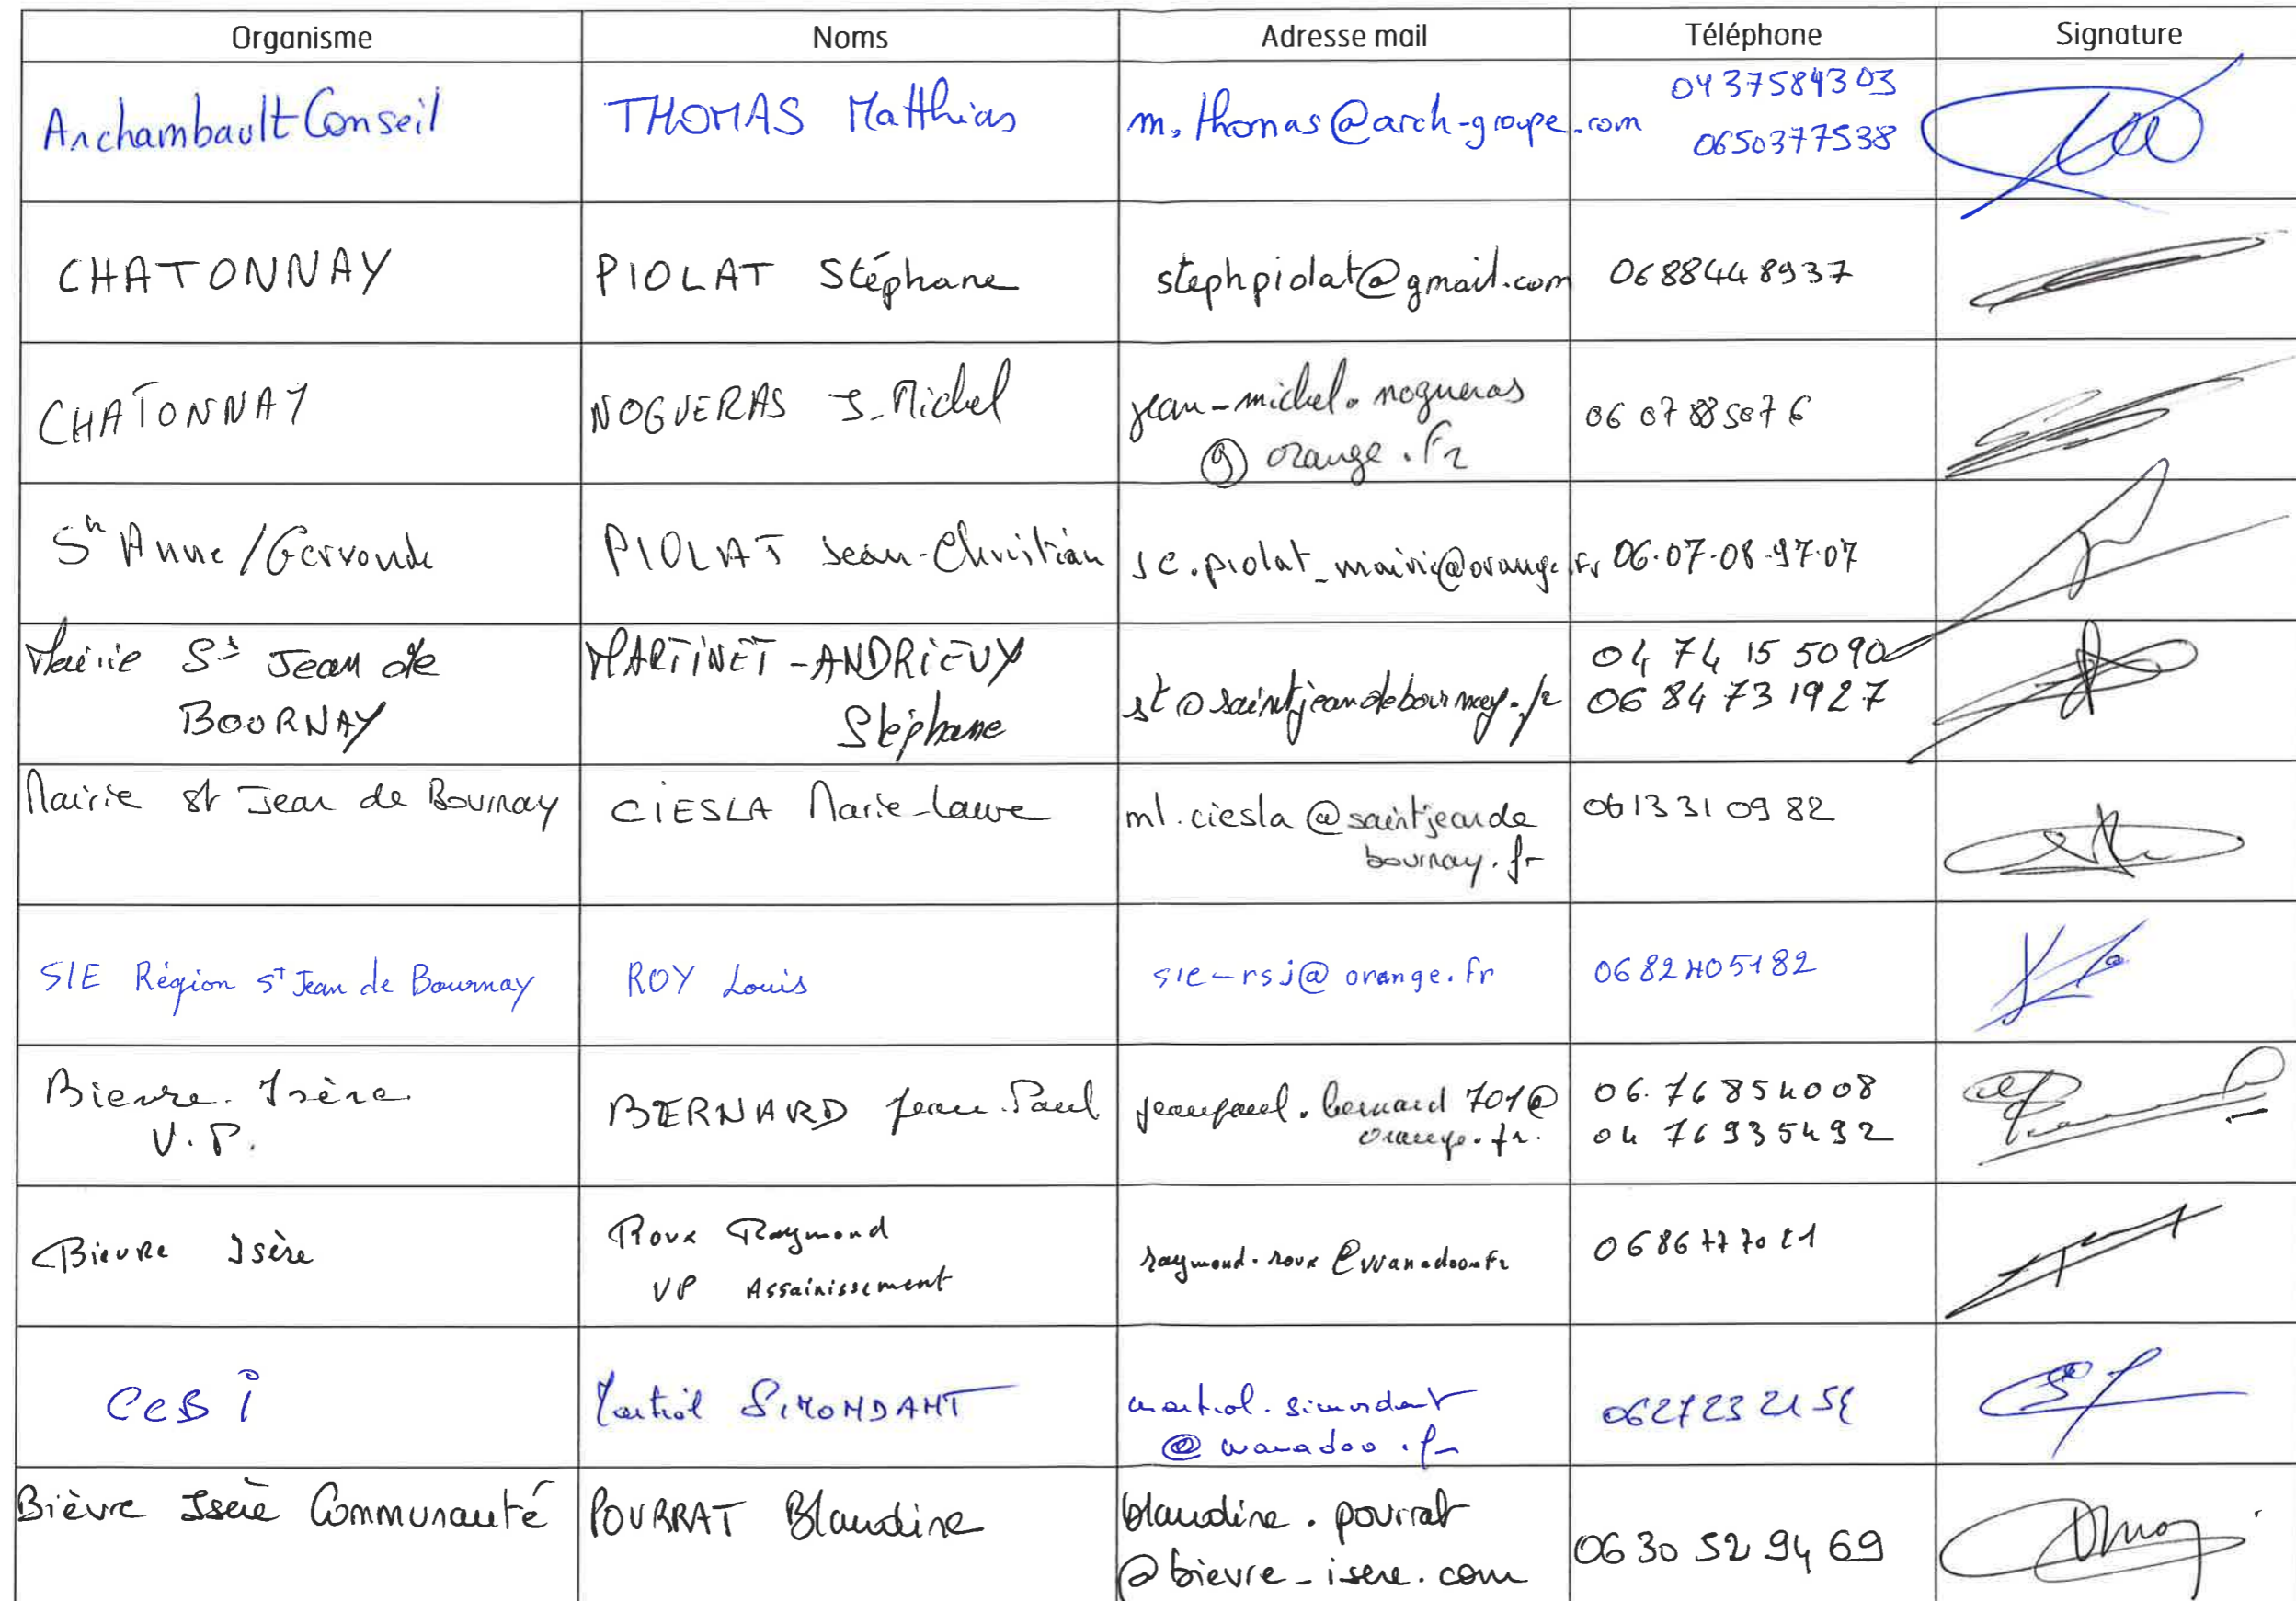 Organisme Noms Adresse mail Téléphone Signature
Archambault Conseil THOMAS Matthias m.thomas@arch-groupe.com 0437584303
0650377538
CHATONNAY PIOLAT Stéphane stephpiolat@gmail.com 0688448937
CHATONNAY NOGUERAS J-Michel jean-michel.nogueras
@orange.fr
06 07 885076
Ste Anne/Gervonde PIOLAT Jean-Christian jc.piolat_mairie@orange.fr 06.07.08.97.07
Mairie St Jean de
BOURNAY
MARTINET-ANDRIEUX
Stéphane
st@saintjeandebournay.fr
04 74 15 5090
06 84 73 1927
Mairie St Jean de Bournay CIESLA Marie-Laure ml.ciesla@saintjeande
bournay.fr
0613310982
SIE Région St Jean de Bournay ROY Louis sie-rsj@orange.fr 0682405182
Bievre. Isère
V.P.
BERNARD Jean.Paul jeanpaul.bernard701@
orange.fr.
06.76854008
04 76935492
Bievre Isère Roux Raymond
VP Assainissement
raymond.roux@wanadoo.fr
CCBI Martial SIMONDANT martial.simondant
@wanadoo.fr
Bièvre Isère Communauté POURRAT Blandine blandine.pourrat
@bievre-isere.com
06 30 52 94 69